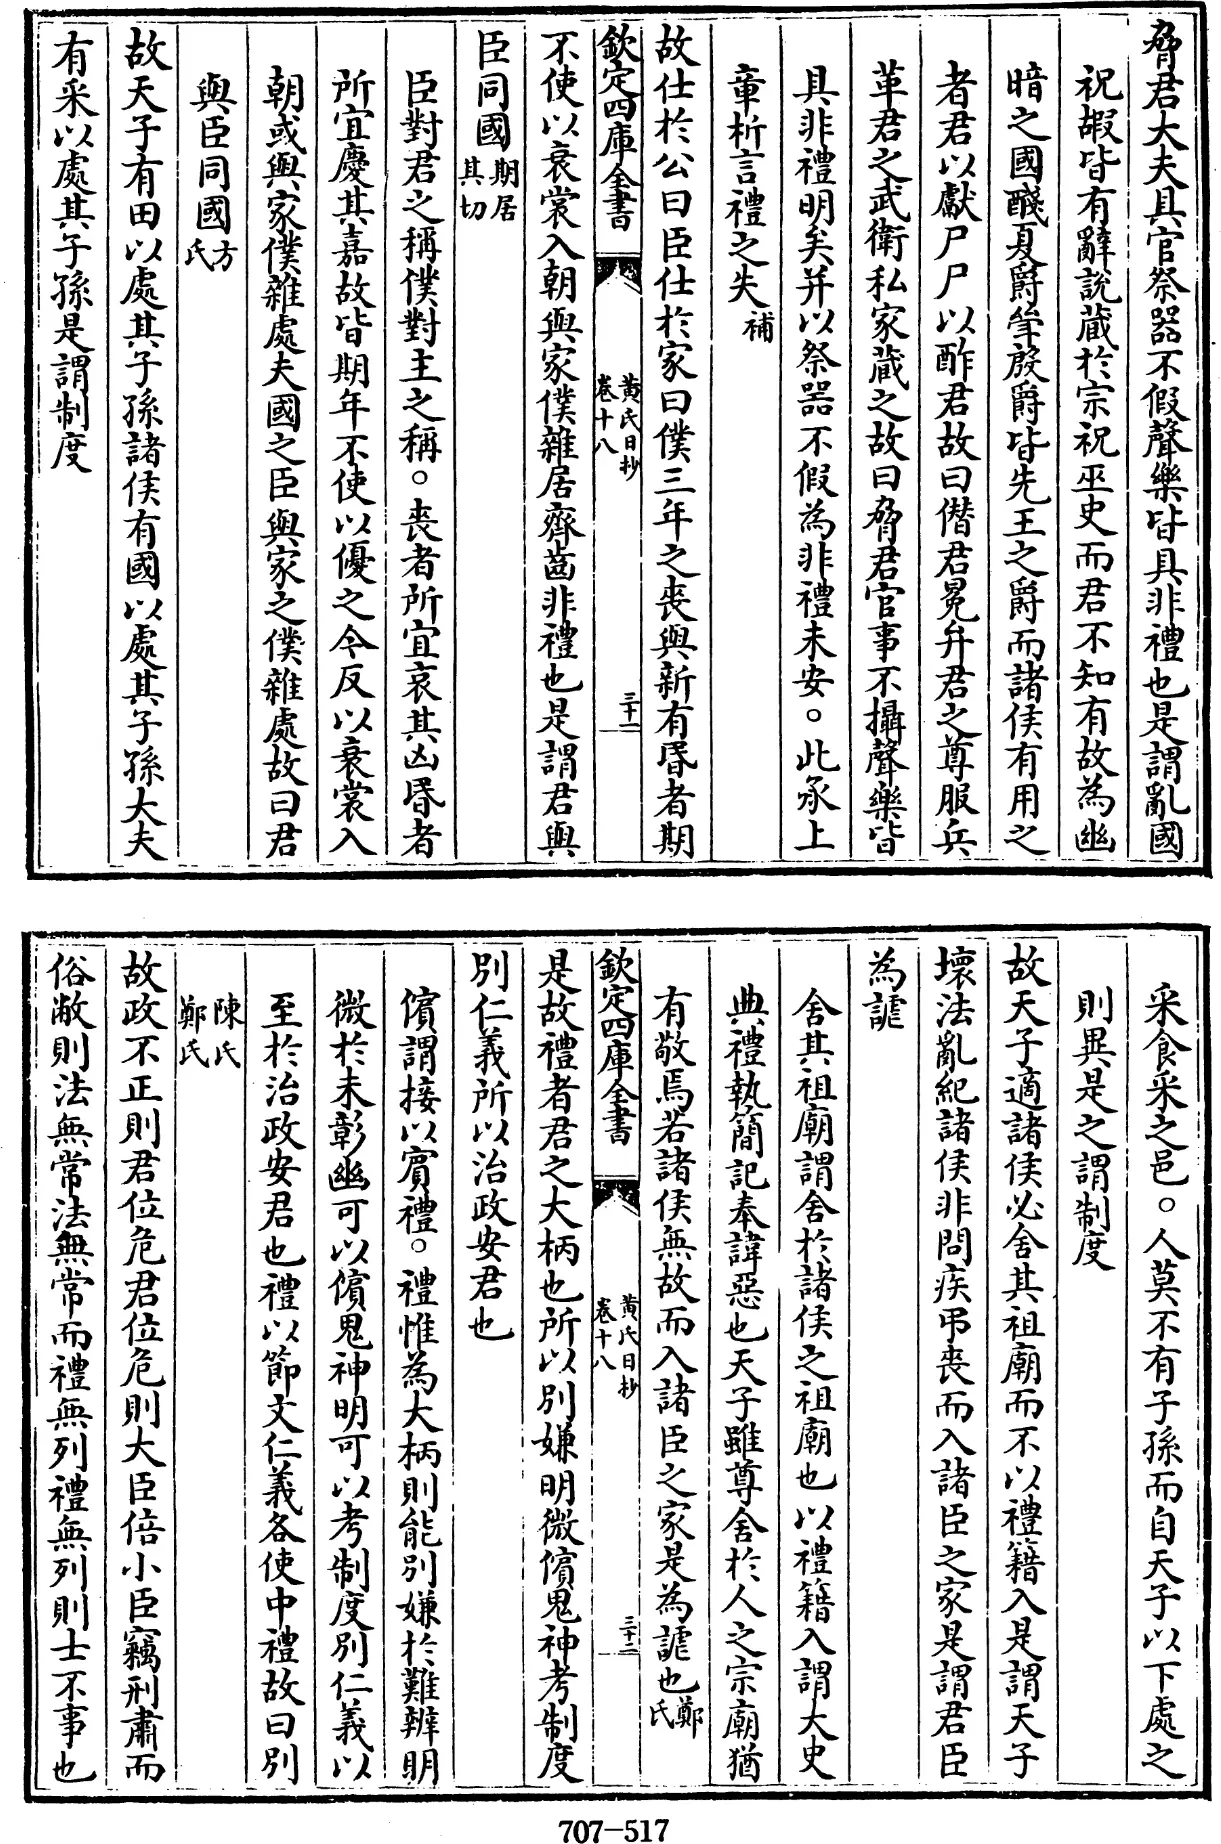 脅君大夫具官祭器不假聲樂皆具非禮也是謂亂國
祝嘏皆有辭說藏於宗祝巫史而君不知有故為幽
暗之國醆夏爵斝殷爵皆先王之爵而諸侯有用之
者君以獻尸尸以酢君故曰僣君冕弁君之尊服兵
革君之武衛私家藏之故曰脅君官事不攝聲樂皆
具非禮明矣并以祭器不假為非禮未安○此承上
章析言禮之失補
故仕於公曰臣仕於家曰僕三年之喪與新有昏者期
欽定四庫全書
黄氏日抄
卷十八
三十一
不使以衰裳入朝與家僕雜居齊齒非禮也是謂君與
臣同國期居其切
臣對君之稱僕對主之稱○喪者所宜哀其凶昏者
所宜慶其嘉故皆期年不使以優之今反以衰裳入
朝或與家僕雜處夫國之臣與家之僕雜處故曰君
與臣同國方氏
故天子有田以處其子孫諸侯有國以處其子孫大夫
有采以處其子孫是謂制度
采食采之邑○人莫不有子孫而自天子以下處之
則異是之謂制度
故天子適諸侯必舍其祖廟而不以禮籍入是謂天子
壞法亂紀諸侯非問疾弔喪而入諸臣之家是謂君臣
為謔
舍其祖廟謂舍於諸侯之祖廟也以禮籍入謂大史
典禮執簡記奉諱惡也天子雖尊舍於人之宗廟猶
有敬焉若諸侯無故而入諸臣之家是為謔也鄭氏
欽定四庫全書
黄氏日抄
卷十八
三十二
是故禮者君之大柄也所以別嫌明微儐鬼神考制度
別仁義所以治政安君也
儐謂接以賓禮○禮惟為大柄則能別嫌於難辨明
微於未彰幽可以儐鬼神明可以考制度別仁義以
至於治政安君也禮以節文仁義各使中禮故曰別
陳氏
鄭氏
故政不正則君位危君位危則大臣倍小臣竊刑肅而
俗敝則法無常法無常而禮無列禮無列則士不事也
707-517